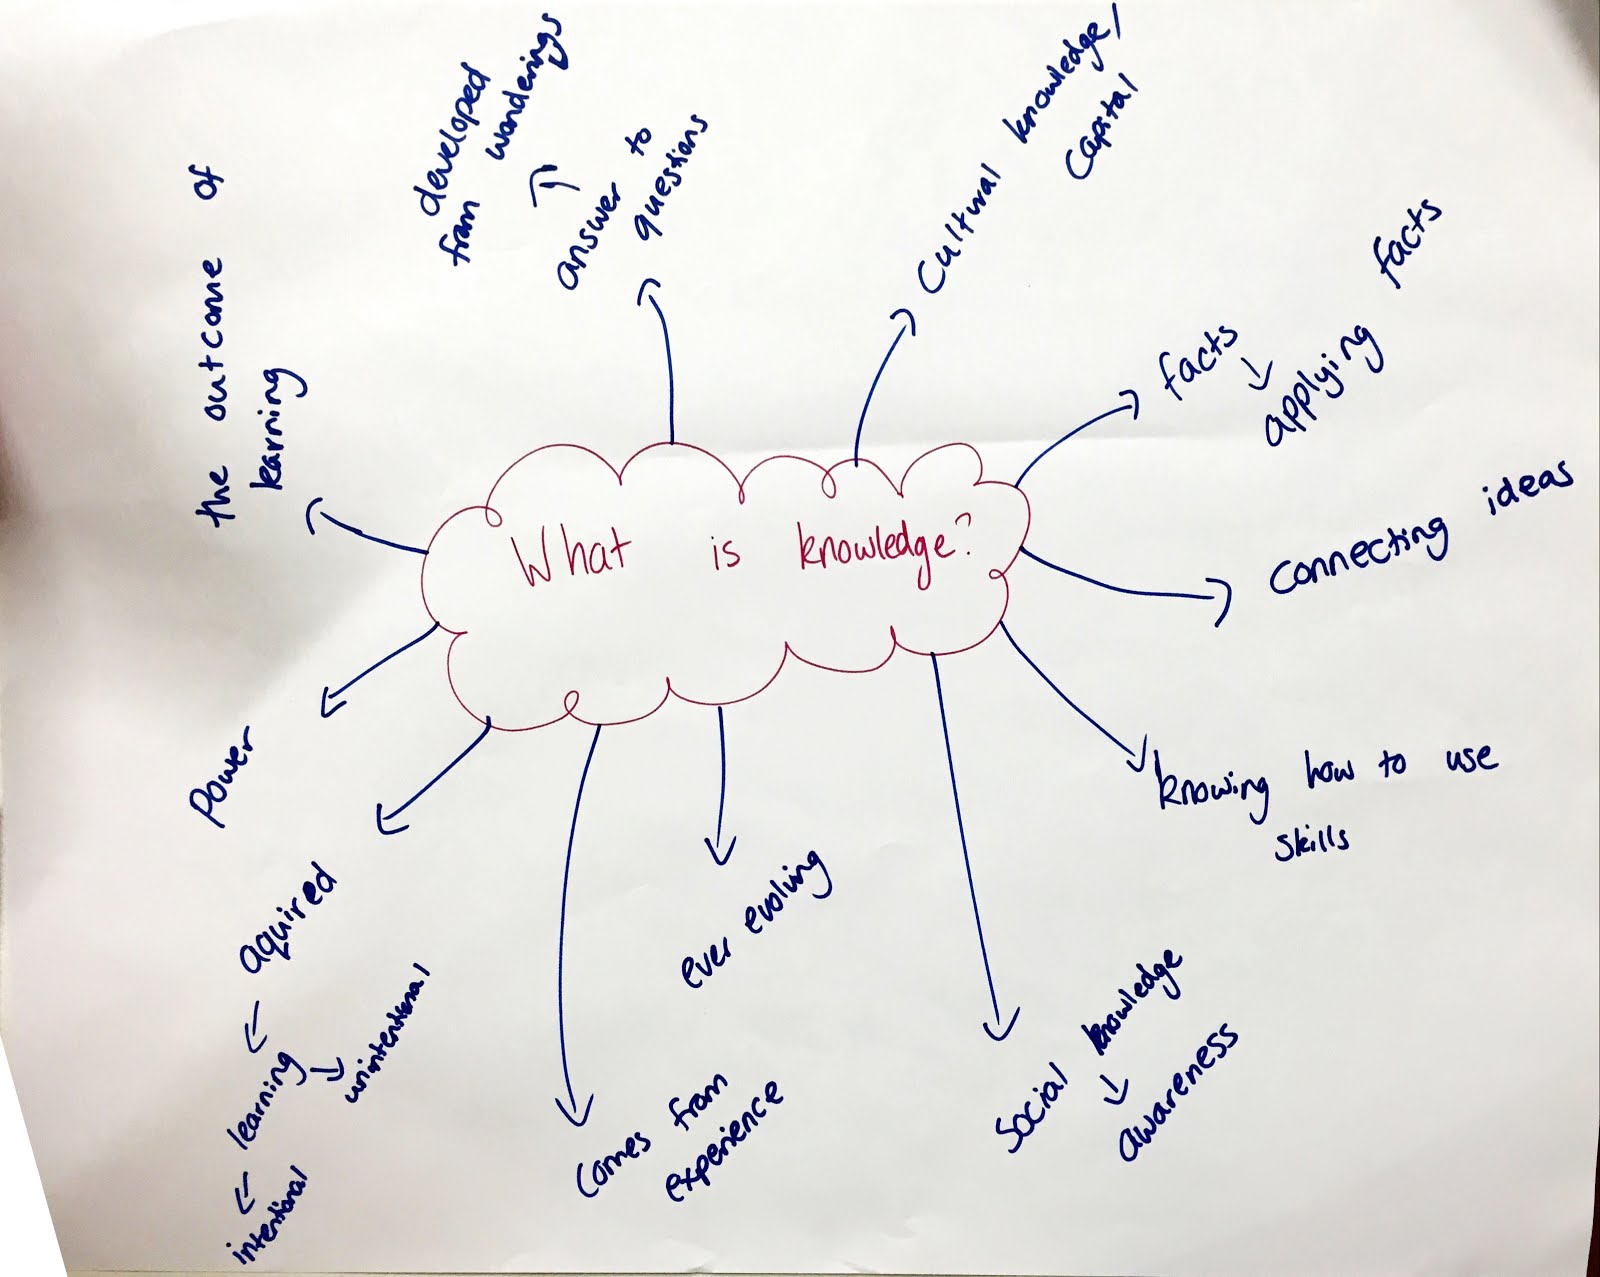 What is knowledge?
the outcome of
learning
developed
from wonderings
answer to
questions
Cultural knowledge/
Capital
facts
applying facts
connecting ideas
knowing how to use
skills
Social knowledge
awareness
ever evolving
Comes from
experience
aquired
learning
unintentional
intentional
Power